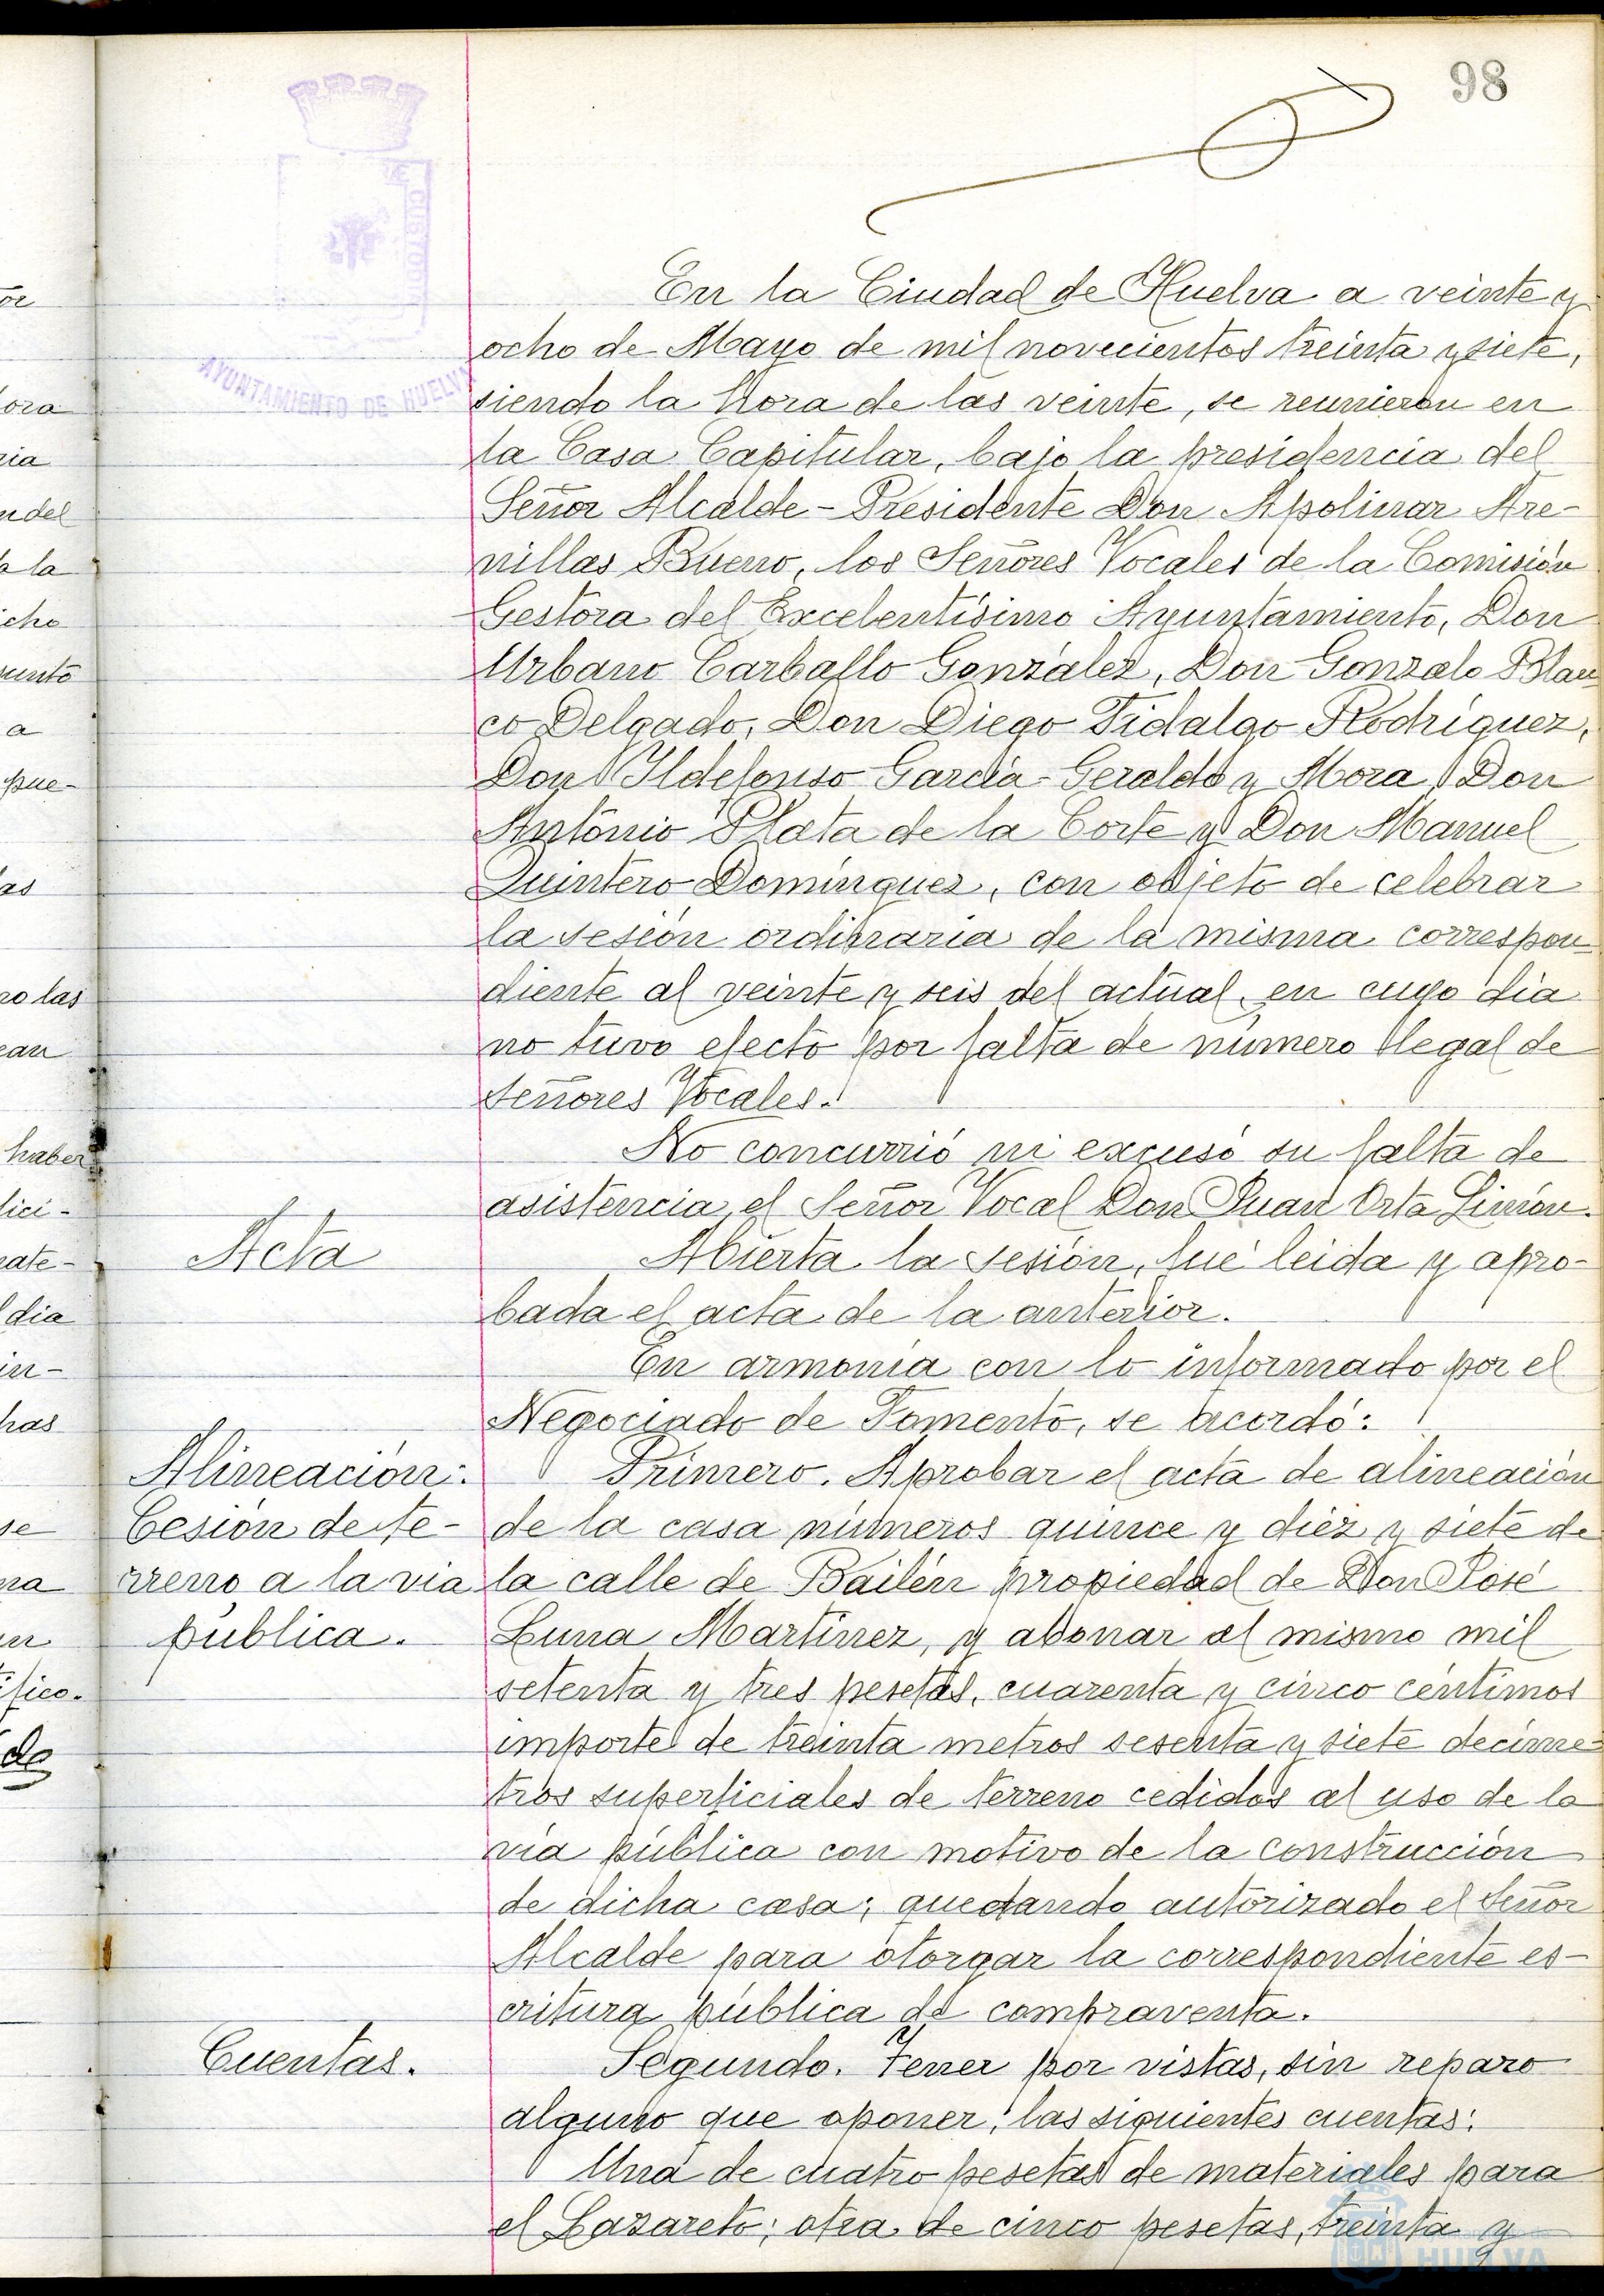 98
AYUNTAMIENTO DE HUELVA
En la Ciudad de Huelva a veinte y
ocho de Mayo de mil novecientos treinta y siete,
siendo la hora de las veinte, se reunieron en
la Casa Capitular, bajo la presidencia del
Señor Alcalde-Presidente Don Apolinar Are-
nillas Bueno, los Señores Vocales de la Comisión
Gestora del Excelentísimo Ayuntamiento, Don
Urbano Carballo González, Don Gonzalo Blan-
co Delgado, Don Diego Fidalgo Rodríguez,
Don Ildefonso García-Geraldo y Mora, Don
Antonio Plata de la Corte y Don Manuel
Quintero Domínguez, con objeto de celebrar
la sesión ordinaria de la misma correspon-
diente al veinte y seis del actual, en cuyo día
no tuvo efecto por falta de número legal de
Señores Vocales.
No concurrió ni excusó su falta de
asistencia el Señor Vocal Don Juan Orta Limón.
Acta
Abierta la sesión, fué leida y apro-
bada el acta de la anterior.
En armonía con lo informado por el
Negociado de Fomento, se acordó:
Alineación:
Cesión de te-
rreno a la via
pública.
Primero. Aprobar el acta de alineación
de la casa números quince y diéz y siete de
la calle de Bailén propiedad de Don José
Luna Martínez, y abonar al mismo mil
setenta y tres pesetas, cuarenta y cinco céntimos
importe de treinta metros sesenta y siete decíme-
tros superficiales de terreno cedidos al uso de la
vía pública con motivo de la construcción
de dicha casa; quedando autorizado el Señor
Alcalde para otorgar la correspondiente es-
critura pública de compraventa.
Cuentas.
Segundo. Tener por vistas, sin reparo
alguno que oponer, las siguientes cuentas:
Una de cuatro pesetas de materiales para
el Lazareto; otra de cinco pesetas, treinta y
HUELVA